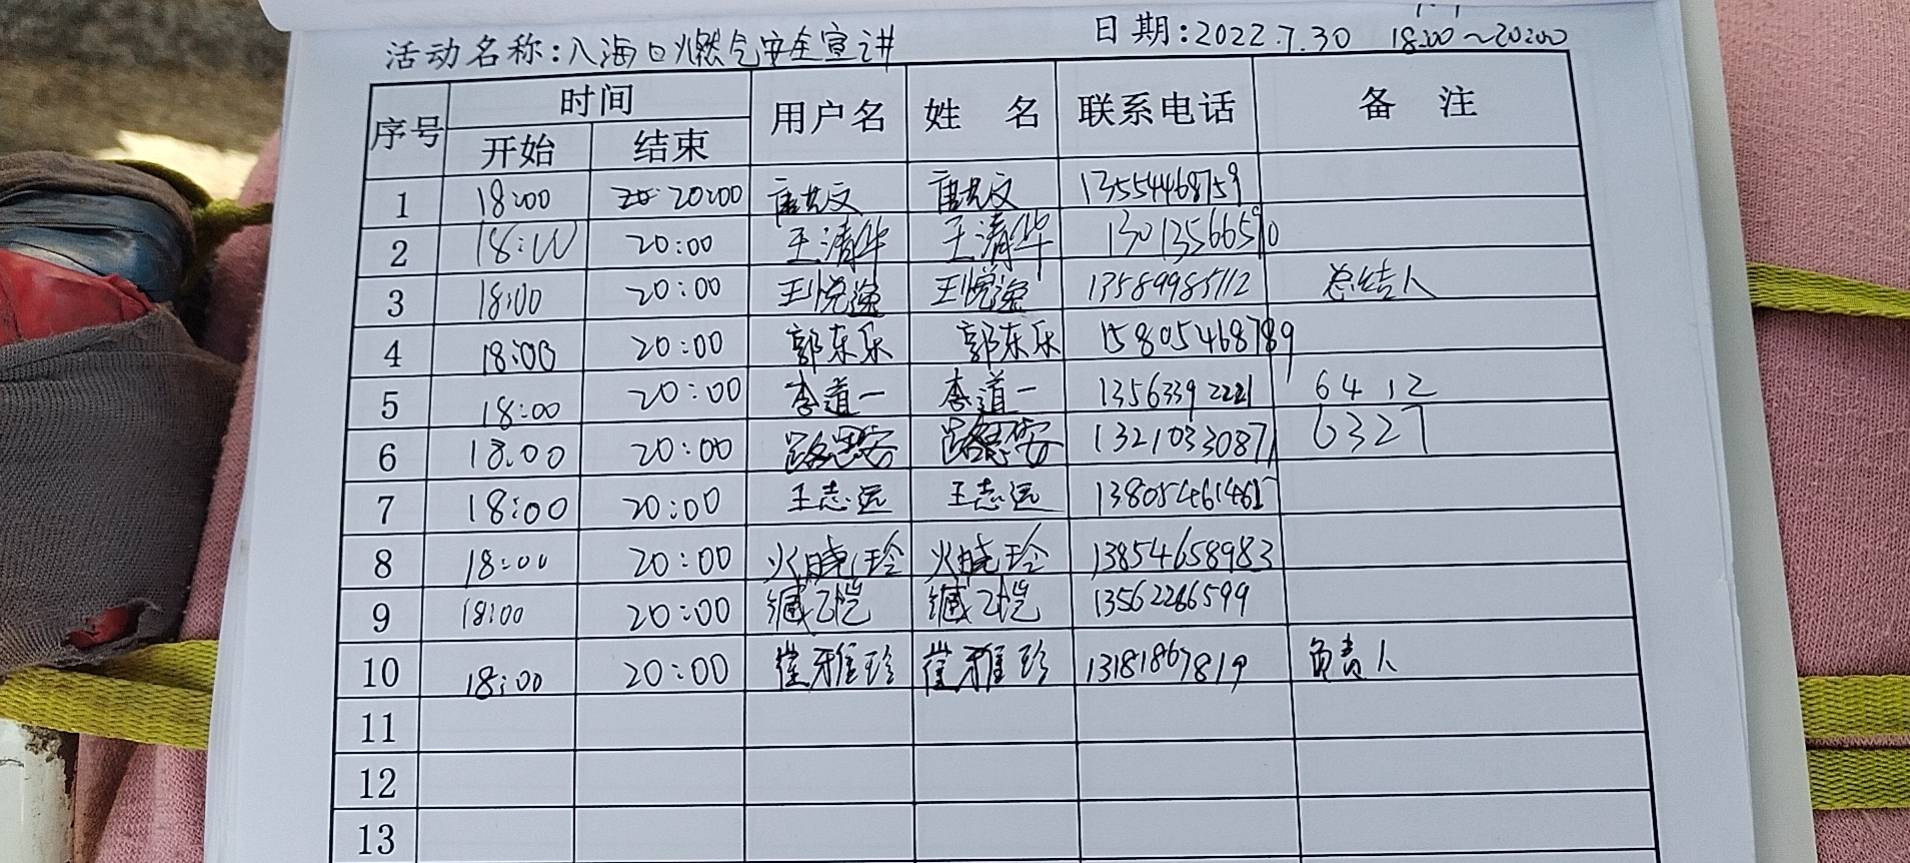 活动名称:八海口燃气安全宣讲 日期:2022.7.30 18:00~20:00
序号 时间 用户名 姓 名 联系电话 备 注
开始 结束
1 18:00 20:00 13554468759
2 18:00 20:00 王清华 王清华 13013566510
3 18:00 20:00 王悦逸 王悦逸 13589985112 总结人
4 18:00 20:00 郭东乐 郭东乐 15805468789
5 18:00 20:00 李道一 李道一 13563392221 6412
6 18:00 20:00 路思安 路思安 13210330871 6327
7 18:00 20:00 王志远 王志远
8 18:00 20:00 火晓玲 火晓玲 13854658983
9 18:00 20:00 臧乙恺 臧乙恺 13562286599
10 18:00 20:00 崔雅珍 崔雅珍 13181867819 负责人
11
12
13